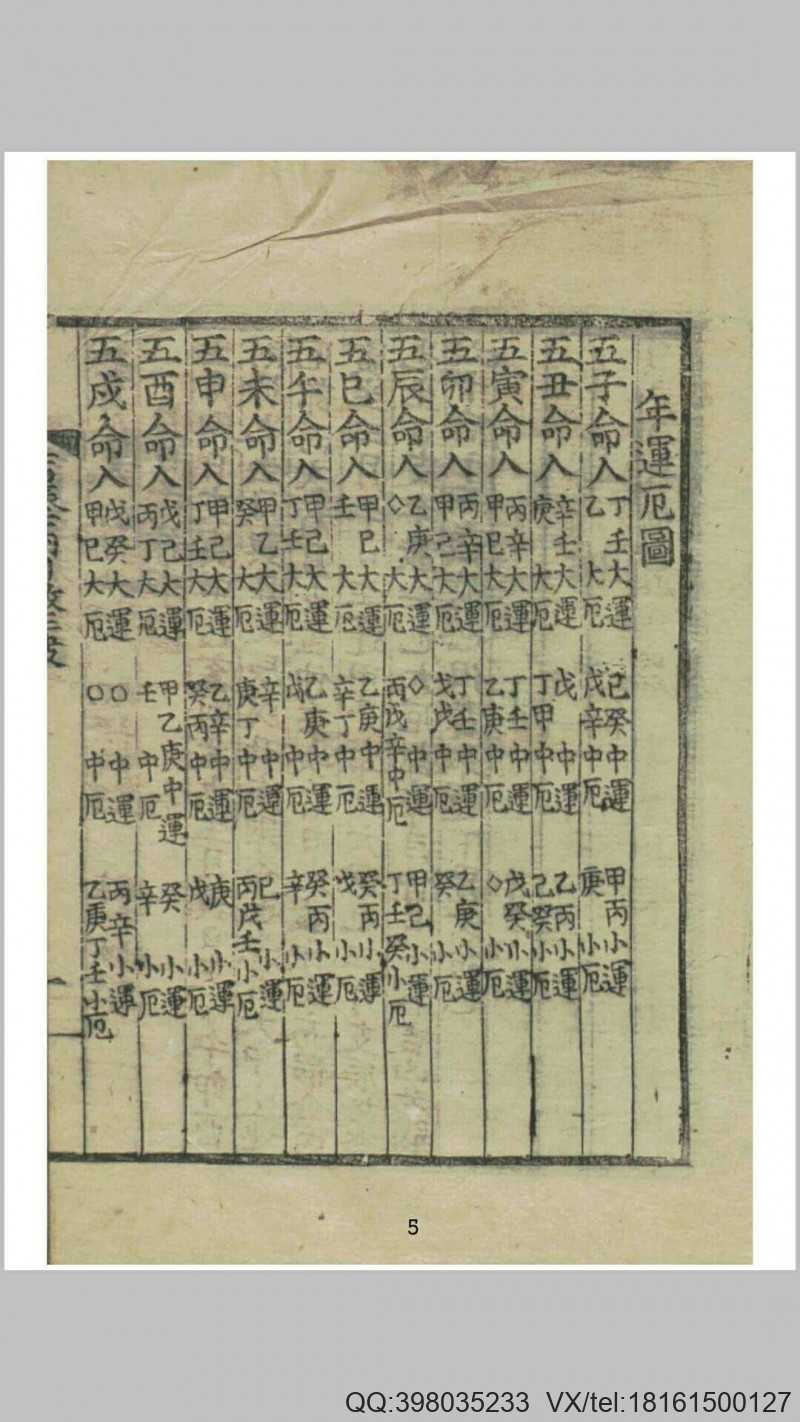 年運厄圖
五子命人 丁壬大運 乙大厄 己癸中運 戊辛中厄 甲丙小運 庚小厄
五丑命人 辛壬大運 庚大厄 戊中運 丁甲中厄 乙丙小運 己癸小厄
五寅命人 丙辛大運 甲巳大厄 丁壬中運 乙庚中厄 戊癸小運 ○小厄
五卯命人 丙辛大運 甲己大厄 丁壬中運 戊戌中厄 乙庚小運 癸小厄
五辰命人 乙庚大運 ○大厄 ○中運 丙戊辛中厄 甲己小運 丁壬癸小厄
五巳命人 甲巳大運 壬大厄 乙庚中運 辛丁中厄 癸丙小運 戊小厄
五午命人 甲己大運 丁壬大厄 乙庚中運 戊中厄 癸丙小運 辛小厄
五未命人 甲乙大運 癸大厄 辛中運 庚丁中厄 巳小運 丙戊壬小厄
五申命人 甲己大運 丁壬大厄 乙辛中運 癸丙中厄 庚小運 戊小厄
五酉命人 戊己大運 丙丁大厄 甲乙庚中運 壬中厄 癸小運 辛小厄
五戌命人 戊癸大運 甲巳大厄 ○中運 ○中厄 丙辛小運 乙庚丁壬小厄
5
QQ:398035233 VX/tel:18161500127